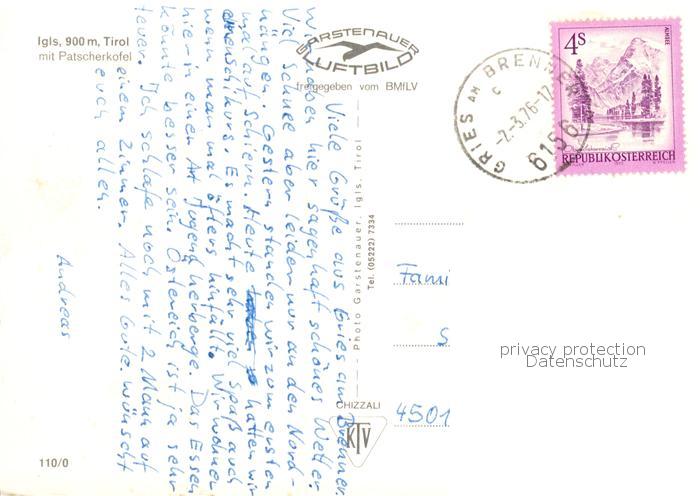 Igls, 900 m, Tirol
mit Patscherkofel
GARSTENAUER
LUFTBILD
freigegeben vom BMfLV
GRIES AM BRENNER
c
-2.-3.76-17
6156
4S
ALMSEE
REPUBLIKÖSTERREICH
Viele Grüße aus Gries am Brenner.
Wir haben hier sagenhaft schönes Wetter.
Viel Schnee aber leider nur an den Nord-
hängen. Gestern standen wir zum ersten
mal auf Schiern. Heute hatten wir
Schikurs. Es macht sehr viel Spaß auch
wenn man mal öfters hinfällt. Wir wohnen
hier in einer Art Jugendherberge. Das Essen
könnte besser sein. Östereich ist ja sehr
teuer. Ich schlafe noch mit 2 Mann auf
einem Zimmer. Alles Gute wünscht
euch allen.
Andreas
Photo Garstenauer, Igls, Tirol
Tel. (05222) 7334
Fami
S
4501
privacy protection
Datenschutz
CHIZZALI
KTV
110/0